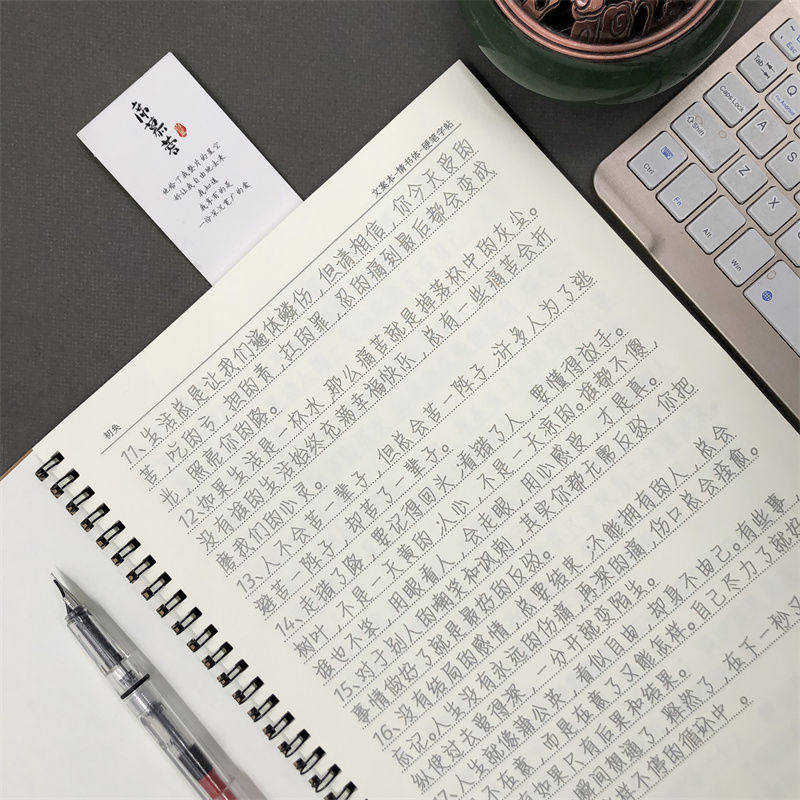 他给了我整片的星空
好让我自由地去来
我知道
我享有的是
一份深沉宽广的爱
文案本·情书体·硬笔字帖
初央
11、生活总是让我们遍体鳞伤，但请相信，你今天受的
苦，吃的亏，担的责，扛的罪，忍的痛到最后都会变成
光，照亮你的路。
12、如果生活是一杯水，那么痛苦就是掉落杯中的灰尘。
没有谁的生活始终充满幸福快乐，总有一些痛苦会折
磨我们的心灵。
13、人不会苦一辈子，但总会苦一阵子，许多人为了逃
避苦一阵子，却苦了一辈子。
14、走错了路，要记得回头，看错了人，要懂得放手。
树叶，不是一天黄的，人心，不是一天凉的。谁都不傻，
谁也不笨，用眼看人，会走眼，用心感受，才是真。
15、对于别人的嘲笑和讽刺，其实你都无需反驳，你把
事情做好了就是最好的反驳。
16、没有结局的感情，总要结束，不能拥有的人，总会
忘记。人生没有永远的伤痛，再深的痛，伤口总会痊愈。
纵使过去爱得深，一分开就变陌生。
17、人生就像蒲公英，看似自由，却身不由己。有些事，
不是不在意，而是在意了又能怎样。自己尽力了就好
有如果只有后果和结果。
瞬间想通了，释然了，在下一秒又
样不停的循环中。
Esc
Tab
Q
Caps Lock
A
Shift
S
Z
Ctrl
Fn
Alt
Win